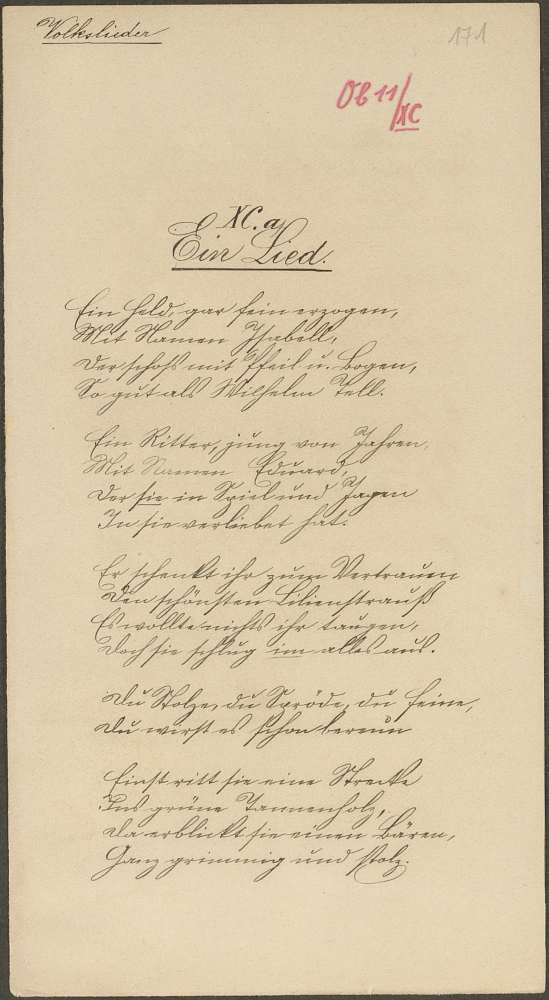 Volkslieder
171
Ob 11/XC
XC. a
Ein Lied.
Ein Held, gar fein erzogen,
Mit Namen Isabell,
Der schoß mit Pfeil u. Bogen,
So gut als Wilhelm Tell.
Ein Ritter, jung von Jahren,
Mit Namen Eduard,
Der sie in Spiel und Jagen
In sie verliebet hat.
Er schenkt ihr zum Vertrauen
Den schönsten Lilienstrauß
Es wollte nichts ihr taugen,
Doch sie schlug im alles aus.
Du Stolze, du Spröde, du feine,
Du wirst es schon bereun
Einst ritt sie eine Strecke
Ins grüne Tannenholz,
Da erblickt sie einen Bären,
Ganz grimmig und stolz.